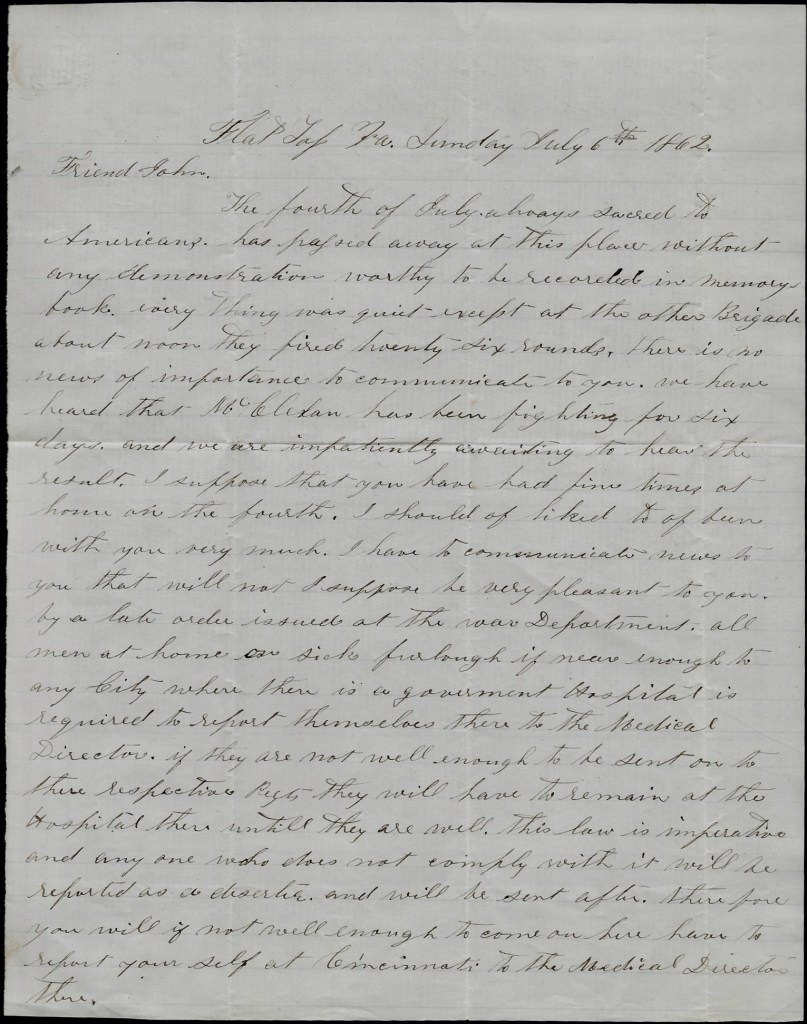 Flat Top Va. Sunday July 6th 1862.
Friend John.
The fourth of July. always sacred to
Americans. has passed away at this place without
any demonstration worthy to be recorded in memorys
book. every thing was quiet except at the other Brigade
about noon they fired twenty six rounds. there is no
news of importance to communicate to you. we have
heard that McClelan has been fighting for six
days. and we are impatiently awaiting to hear the
result. I suppose that you have had fine times at
home on the fourth. I should of liked to of been
with you very much. I have to communicate news to
you that will not I suppose be very pleasant to you.
by a late order issued at the war Department. all
men at home on sick furlough if near enough to
any City where there is a goverment Hospital is
required to report themselves there to the Medical
Director. if they are not well enough to be sent on to
there respective Regts they will have to remain at the
Hospital there untill they are well. this law is imperative
and any one who does not comply with it will be
reported as a deserter. and will be sent after. therefore
you will if not well enough to come on here have to
report your self at Cincinnati to the Medical Director
there.